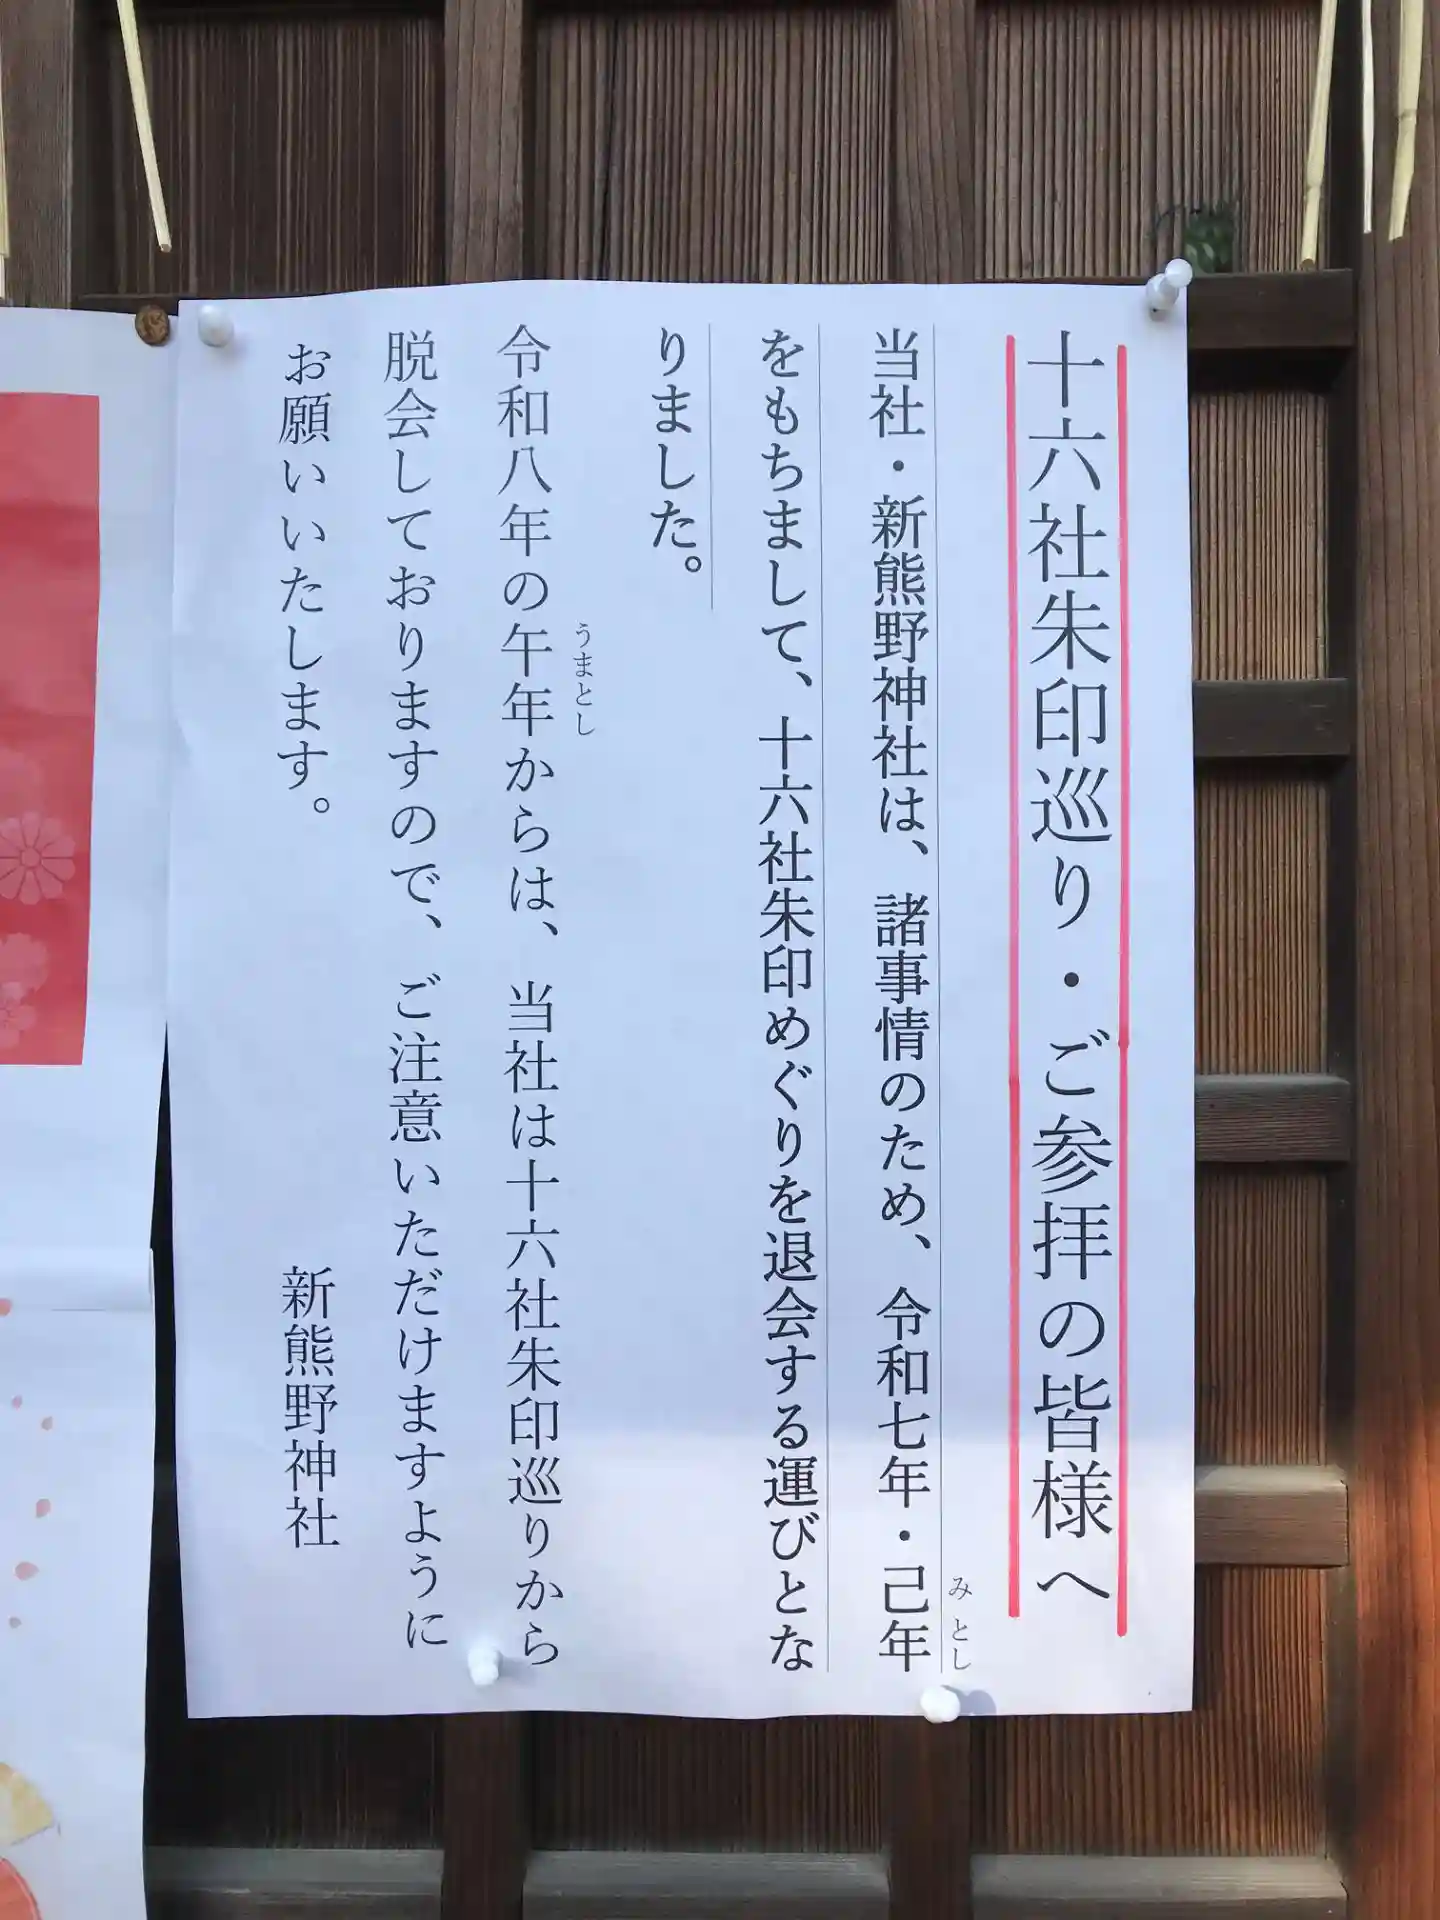 十六社朱印巡り・ご参拝の皆様へ
当社・新熊野神社は、諸事情のため、令和七年・己年
みとし
をもちまして、十六社朱印めぐりを退会する運びとな
りました。
令和八年の午年からは、当社は十六社朱印巡りから
うまとし
脱会しておりますので、ご注意いただけますように
お願いいたします。
新熊野神社